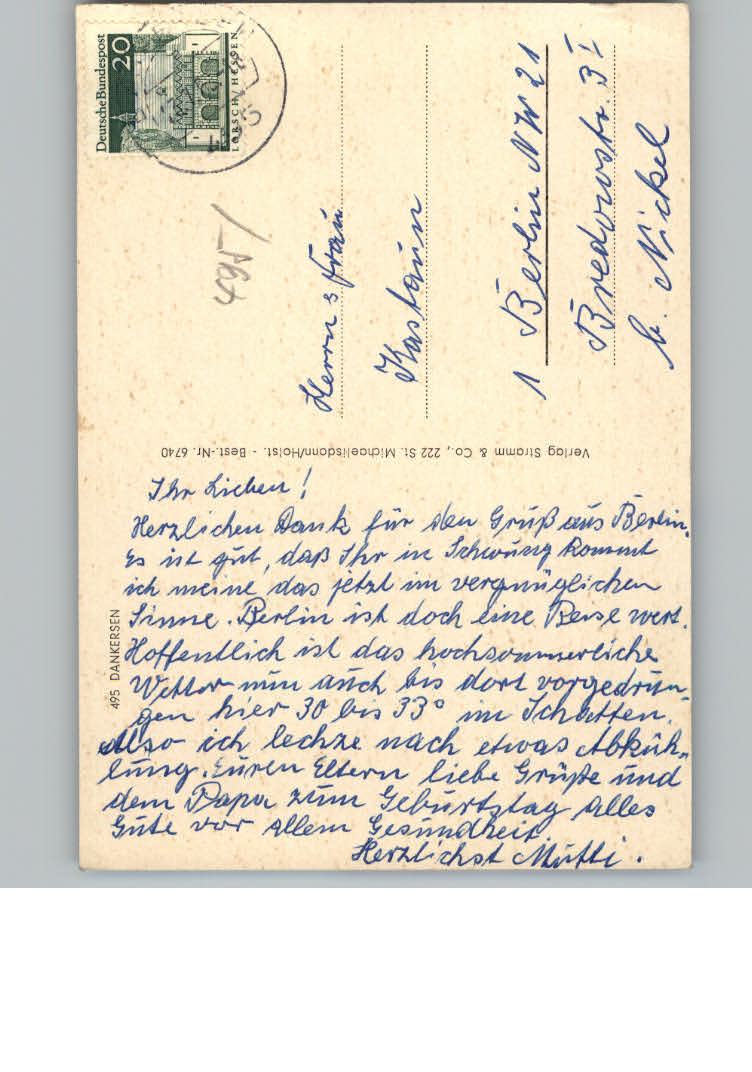 Deutsche Bundespost
20
LORSCH / HESSEN
495
Herrn & Frau
Kastaun
1 Berlin NW 21
Bredowstr. 3I
b. Nickel
Verlag Stramm & Co., 222 St. Michaelisdonn/Holst. - Best.-Nr. 6740
495 DANKERSEN
Ihr Lieben!
Herzlichen Dank für den Gruß aus Berlin.
Es ist gut, daß Ihr in Schwung kommt
ich meine das jetzt im vergnüglichen
Sinne. Berlin ist doch eine Reise wert.
Hoffentlich ist das hochsommerliche
Wetter nun auch bis dort vorgedrun-
gen hier 30 bis 33° im Schatten.
Also ich lechze nach etwas Abküh-
lung. Euren Eltern liebe Grüße und
dem Papa zum Geburtstag alles
Gute vor allem Gesundheit.
Herzlichst Mutti.